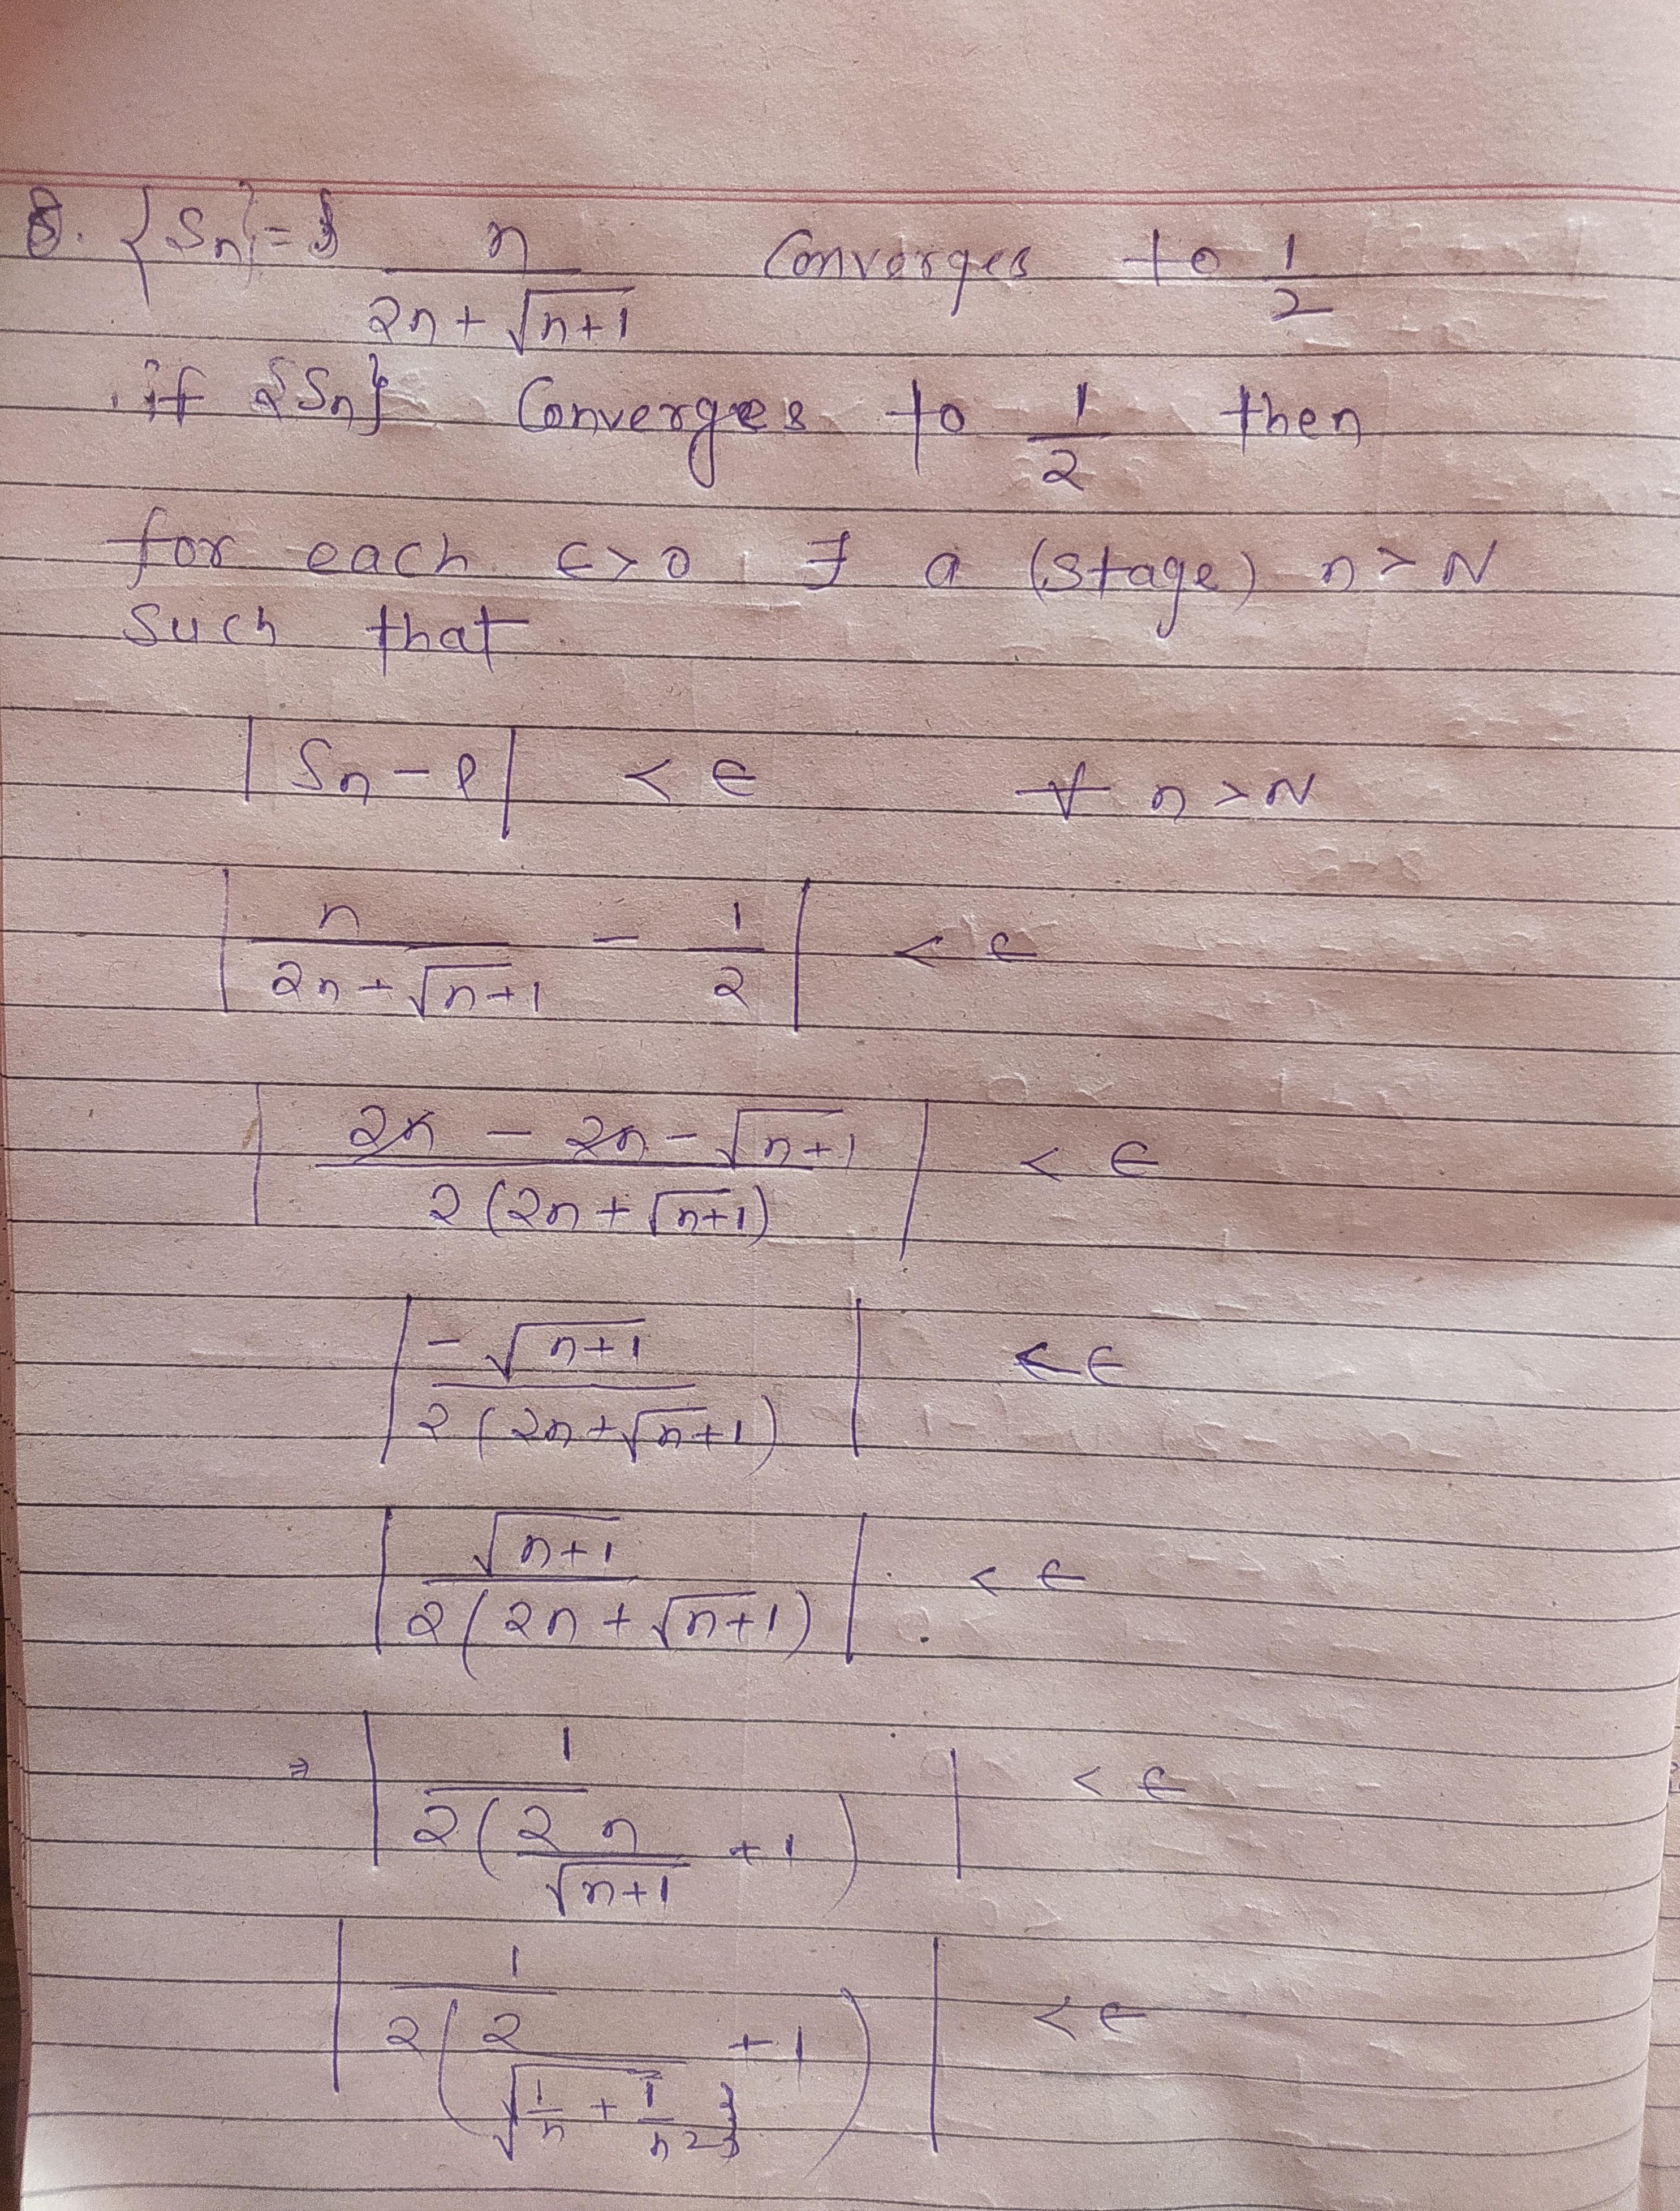 8. {Sn} = n / (2n + √(n+1)) Converges to 1/2
if {Sn} Converges to 1/2 then
for each ϵ>0 ∃ a (stage) n > N
such that
|Sn - l| < ϵ ∀ n > N
| n / (2n + √(n+1)) - 1/2 | < ϵ
| (2n - 2n - √(n+1)) / 2(2n + √(n+1)) | < ϵ
| -√(n+1) / 2(2n + √(n+1)) | < ϵ
| √(n+1) / 2(2n + √(n+1)) | < ϵ
⇒ | 1 / 2(2n/√(n+1) + 1) | < ϵ
| 1 / 2(2/√(1/n + 1/n2) + 1) | < ϵ